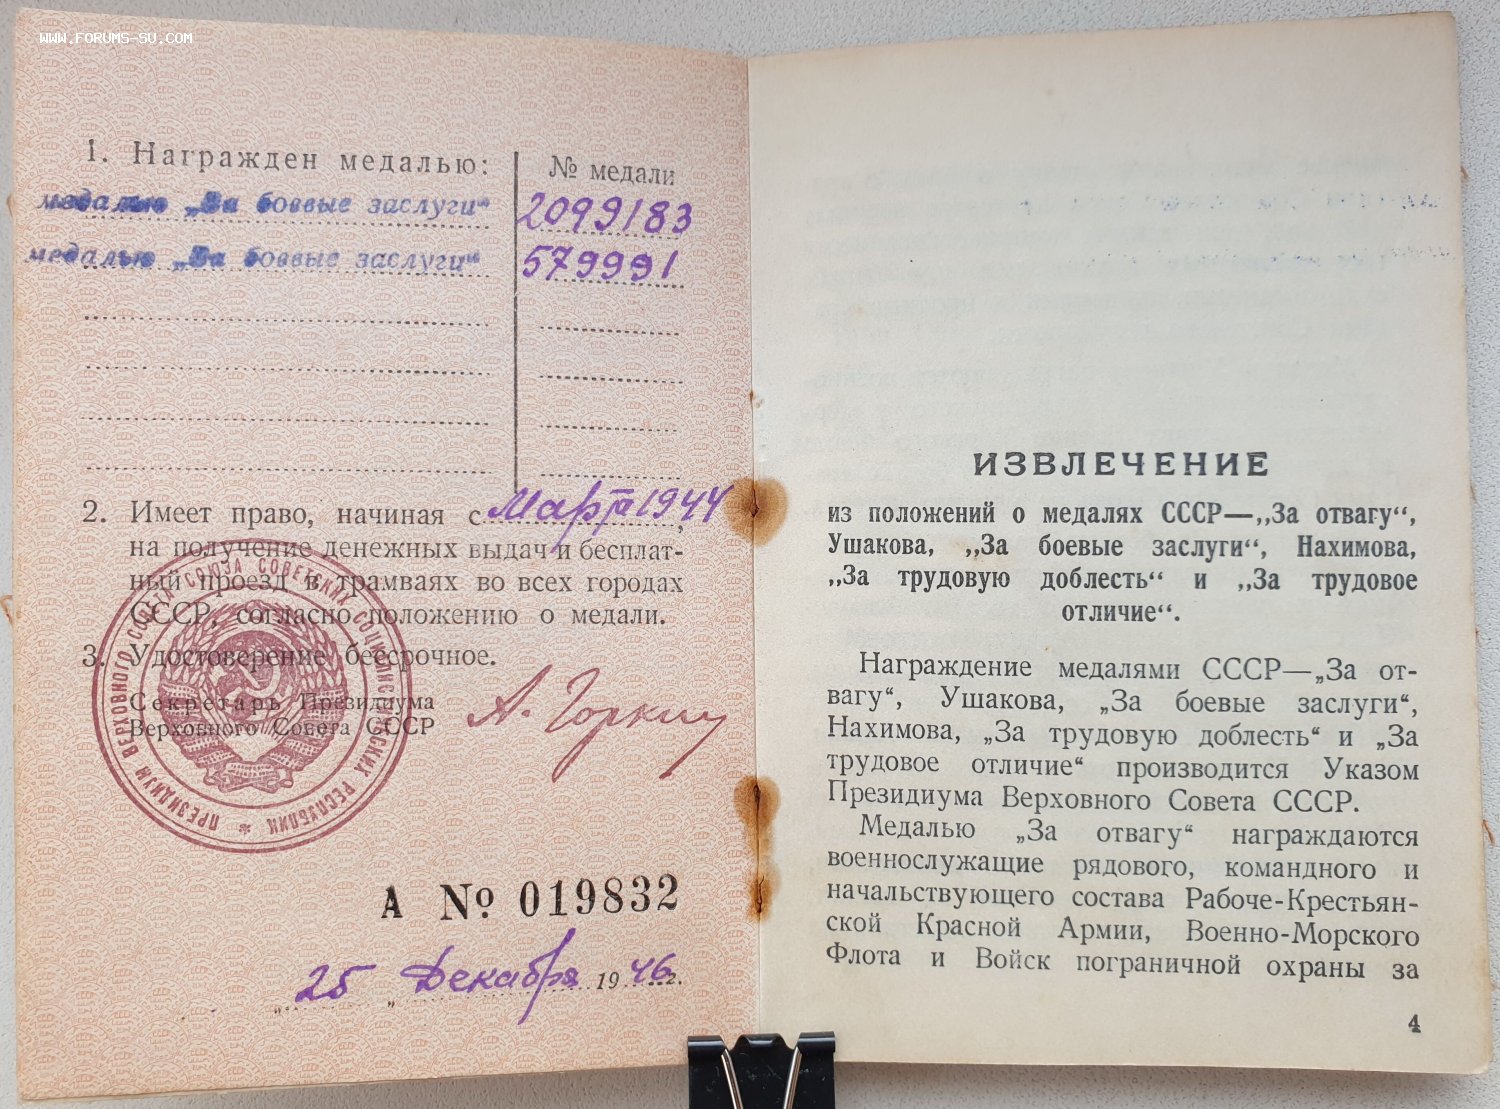 WWW.FORUMS-SU.COM
1. Награжден медалью:
№ медали
медалью „За боевые заслуги“
2099183
медалью „За боевые заслуги“
579991
2. Имеет право, начиная с Март 1944
на получение денежных выдач и бесплат-
ный проезд в трамваях во всех городах
СССР, согласно положению о медали.
3. Удостоверение бессрочное.
Секретарь Президиума
Верховного Совета СССР
А. Горкин
ПРЕЗИДИУМ ВЕРХОВНОГО СОВЕТА СОЮЗА СОВЕТСКИХ СОЦИАЛИСТИЧЕСКИХ РЕСПУБЛИК *
А № 019832
„25“ Декабря 1946 г.
ИЗВЛЕЧЕНИЕ
из положений о медалях СССР—„За отвагу“,
Ушакова, „За боевые заслуги“, Нахимова,
„За трудовую доблесть“ и „За трудовое
отличие“.
Награждение медалями СССР—„За от-
вагу“, Ушакова, „За боевые заслуги“,
Нахимова, „За трудовую доблесть“ и „За
трудовое отличие“ производится Указом
Президиума Верховного Совета СССР.
Медалью „За отвагу“ награждаются
военнослужащие рядового, командного и
начальствующего состава Рабоче-Крестьян-
ской Красной Армии, Военно-Морского
Флота и Войск пограничной охраны за
4